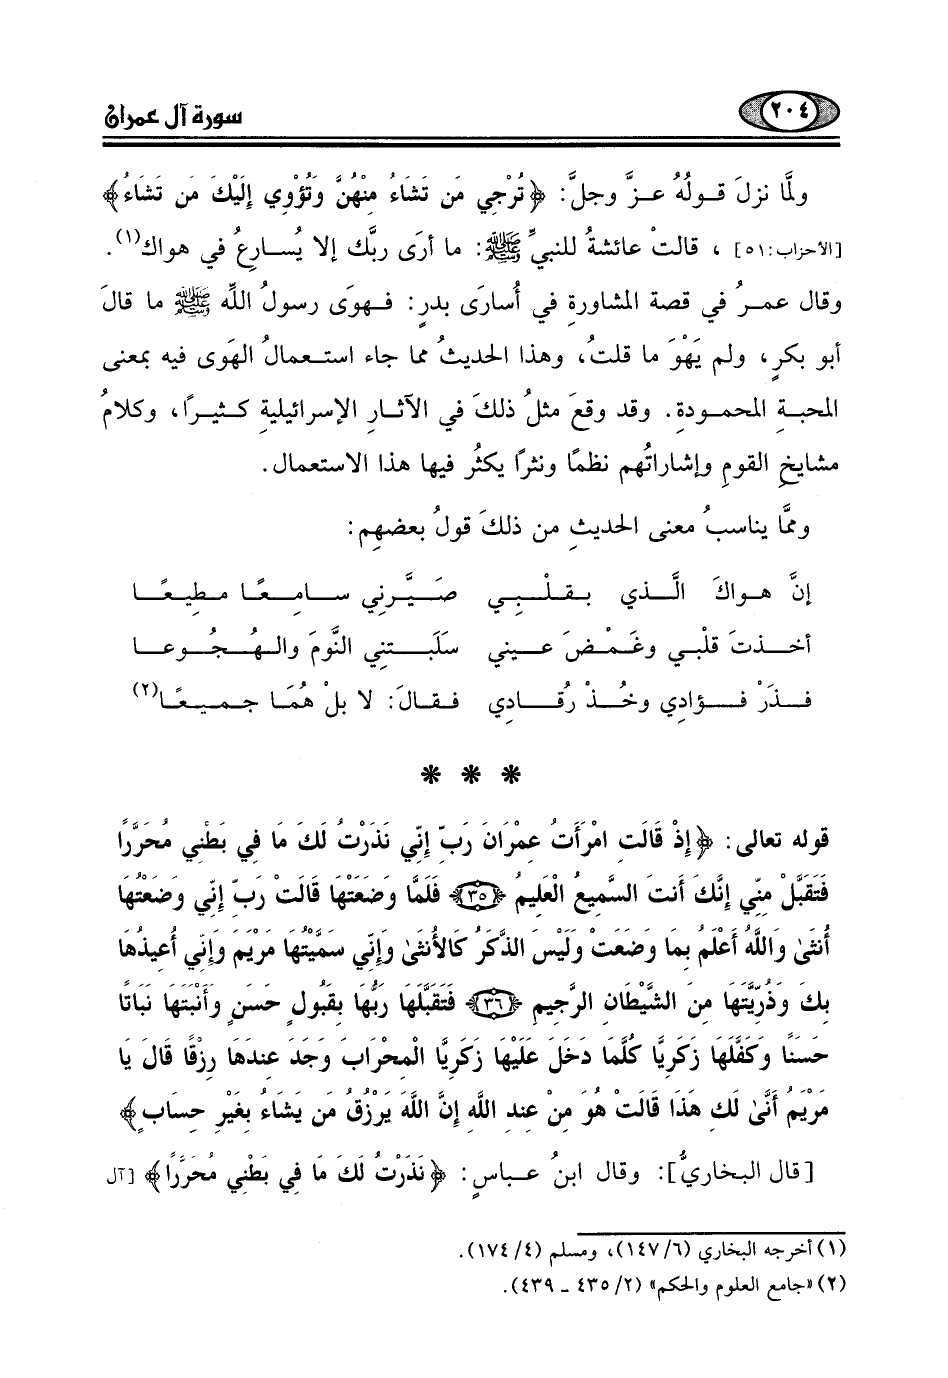 ٢٠٤ سورة آل عمران
ولمَّا نزلَ قـولُهُ عـزَّ وجلَّ: ﴿تُرْجِي مَن تَشَاءُ مِنْهُنَّ وَتُؤْوِي إِلَيْكَ مَن تَشَاءُ﴾
[الأحزاب: ٥١] ، قالتْ عائشةُ للنبيِّ ﷺ: ما أرَى ربَّك إلا يُسـارِعُ في هواك(١).
وقال عمـرُ في قصة المشاورةِ في أُسارَى بدرٍ: فـهوَى رسولُ اللَّهِ ﷺ ما قالَ
أبو بكرٍ، ولم يَهْوَ ما قلتُ، وهذا الحديثُ مما جاء استـعمالُ الهَوى فيه بمعنى
المحبـةِ المحمـودة. وقد وقعَ مثلُ ذلكَ في الآثـار الإسرائيليةِ كـثيـرًا، وكلامُ
مشايخِ القومِ وإشاراتُهم نظمًا ونثرًا يكثُر فيها هذا الاستعمال.
وممَّا يناسبُ معنى الحديثِ من ذلكَ قولُ بعضهِم:
إنَّ هـواكَ الَّـذي بـقـلْـبـي صَـيَّـرني سـامـعًـا مـطـيـعًـا
أخـذتَ قلْبـي وغَـمْـضَ عـيني سَلَبـتـني النَّومَ والـهُـجُـوعـا
فـذَرْ فـؤادي وخُـذْ رُقـادي فـقـالَ: لا بلْ هُمَا جـمـيـعًـا(٢)
* * *
قوله تعالى: ﴿إِذْ قَالَتِ امْرَأَتُ عِمْرَانَ رَبِّ إِنِّي نَذَرْتُ لَكَ مَا فِي بَطْنِي مُحَرَّرًا
فَتَقَبَّلْ مِنِّي إِنَّكَ أَنتَ السَّمِيعُ الْعَلِيمُ ﴿٣٥﴾ فَلَمَّا وَضَعَتْهَا قَالَتْ رَبِّ إِنِّي وَضَعْتُهَا
أُنثَىٰ وَاللَّهُ أَعْلَمُ بِمَا وَضَعَتْ وَلَيْسَ الذَّكَرُ كَالأُنثَىٰ وَإِنِّي سَمَّيْتُهَا مَرْيَمَ وَإِنِّي أُعِيذُهَا
بِكَ وَذُرِّيَّتَهَا مِنَ الشَّيْطَانِ الرَّجِيمِ ﴿٣٦﴾ فَتَقَبَّلَهَا رَبُّهَا بِقَبُولٍ حَسَنٍ وَأَنْبَتَهَا نَبَاتًا
حَسَنًا وَكَفَّلَهَا زَكَرِيَّا كُلَّمَا دَخَلَ عَلَيْهَا زَكَرِيَّا الْمِحْرَابَ وَجَدَ عِندَهَا رِزْقًا قَالَ يَا
مَرْيَمُ أَنَّىٰ لَكِ هَذَا قَالَتْ هُوَ مِنْ عِندِ اللَّهِ إِنَّ اللَّهَ يَرْزُقُ مَن يَشَاءُ بِغَيْرِ حِسَابٍ﴾
[قال البـخاريُّ]: وقال ابنُ عبـاسٍ: ﴿نَذَرْتُ لَكَ مَا فِي بَطْنِي مُحَرَّرًا﴾ [آل
(١) أخرجه البخاري (٦/ ١٤٧)، ومسلم (٤/ ١٧٤).
(٢) «جامع العلوم والحكم» (٢/ ٤٣٥ ـ ٤٣٩).